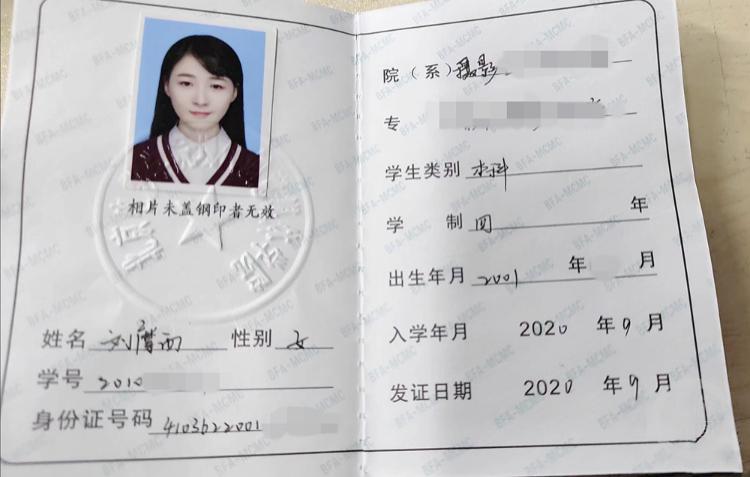 相片未盖钢印者无效
姓名 刘 性别 女
学号 2010
身份证号码 4103622001
院（系） 摄影
专
学生类别 本科
学 制 四 年
出生年月 2001 年 月
入学年月 2020 年 9 月
发证日期 2020 年 9 月
BFA-MCMC